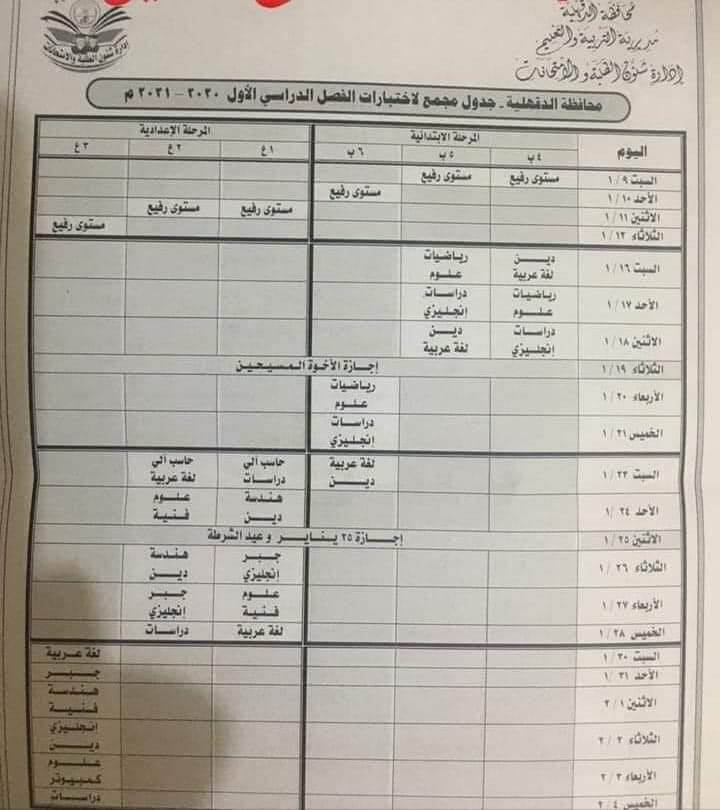 محافظة الدقهلية
مديرية التربية والتعليم
إدارة شئون الطلبة والامتحانات
إدارة شئون الطلبة والامتحانات
محافظة الدقهلية - جدول مجمع لاختبارات الفصل الدراسي الأول ٢٠٢٠ - ٢٠٢١ م
اليوم المرحلة الابتدائية المرحلة الإعدادية
٤ ب ٥ ب ٦ ب ١ ع ٢ ع ٣ ع
السبت ١/٩ مستوى رفيع مستوى رفيع
الأحد ١/١٠ مستوى رفيع
الاثنين ١/١١ مستوى رفيع مستوى رفيع
الثلاثاء ١/١٢ مستوى رفيع
السبت ١/١٦ ديـن رياضيات
لغة عربية علوم
الأحد ١/١٧ رياضيات دراسات
علوم إنجليزي
الاثنين ١/١٨ دراسات ديـن
إنجليزي لغة عربية
الثلاثاء ١/١٩ إجازة الأخوة المسيحين
الأربعاء ١/٢٠ رياضيات
علوم
الخميس ١/٢١ دراسات
إنجليزي
السبت ١/٢٣ لغة عربية حاسب آلي حاسب آلي
ديـن دراسات لغة عربية
الأحد ١/٢٤ هندسة علوم
ديـن فنية
الاثنين ١/٢٥ إجازة ٢٥ يناير وعيد الشرطة
الثلاثاء ١/٢٦ جبر هندسة
إنجليزي ديـن
الأربعاء ١/٢٧ علوم جبر
فنية إنجليزي
الخميس ١/٢٨ لغة عربية دراسات
السبت ١/٣٠ لغة عربية
الأحد ١/٣١ جبر
الاثنين ٢/١ هندسة
فنية
الثلاثاء ٢/٢ إنجليزي
ديـن
الأربعاء ٢/٣ علوم
كمبيوتر
الخميس ٢/٤ دراسات